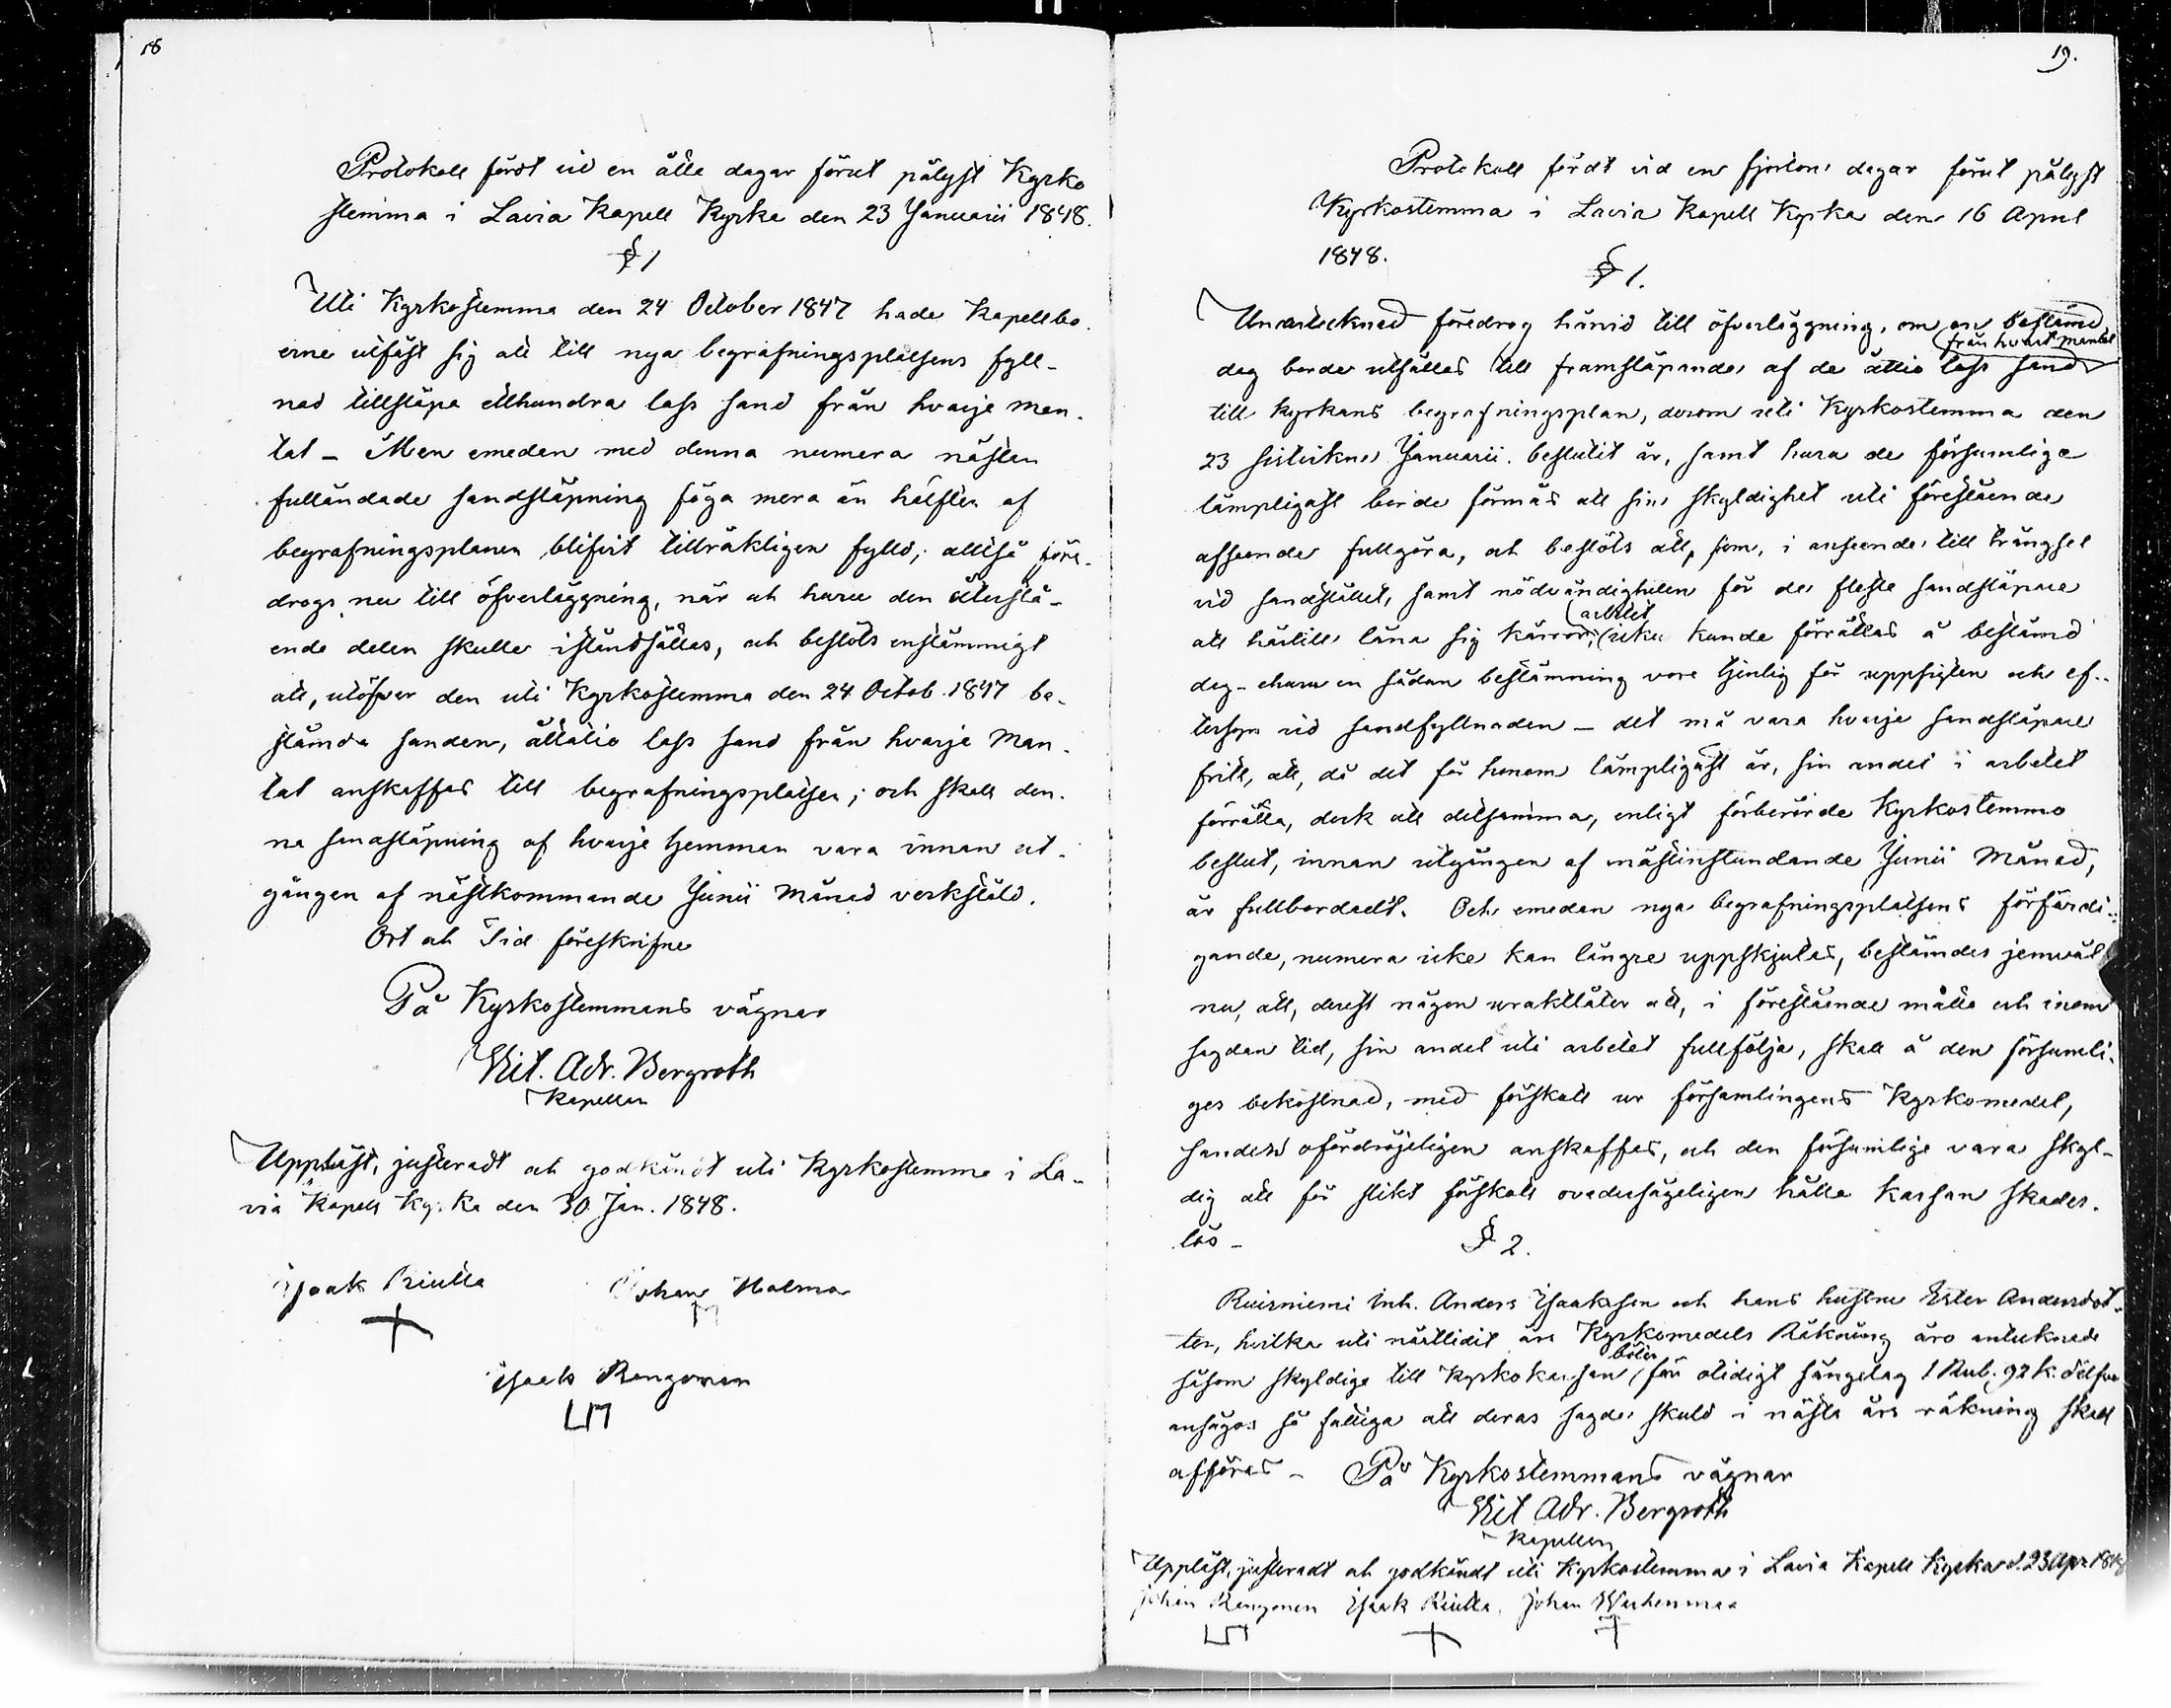 18
Protokoll fördt vid en åtta dagar förut pålyst Kyrko
stemma i Lavia Kapell Kyrka den 23 Januarii 1848.
§ 1
Uti Kyrkostemma den 24 October 1847 hade Kapellbo-
erne utfäst sig att till nya begrafningsplatsens fyll-
nad tillsläpa etthundra lass sand från hvarje man-
tal – Men emedan med denna numera nästan
fulländade sandsläpning föga mera än hälften af
begrafningsplanen blifvit tillräkligen fylld; alltså före-
drogs nu till öfverläggning, när och huru den återstå-
ende delen skulle iståndsättas, och beslöts enstämmigt
att, utöfver den uti Kyrkostemma den 24 Octob. 1847 be-
stämda sanden, åttatio lass sand från hvarje Man-
tal anskaffas till begrafningsplatsen; och skall den-
na sandsläpning af hvarje hemman vara innan ut-
gången af nästkommande Junii Månad verkstäld.
Ort och Tid föreskrifne
På Kyrkostemmans vägnar
Vict. Adr. Bergroth
Kapellan
Uppläst, justeradt och godkändt uti Kyrkostemma i La-
via Kapell Kyrka den 30 Jan. 1848.
Isaak Riutta Johan Halma
Isaak Rengonen
19.
Protokoll fördt vid en fjorton dagar förut pålyst
Kyrkostemma i Lavia Kapell Kyrka den 16 April
1848.
§ 1.
Undertecknad föredrog härvid till öfverläggning, om en bestämd
från hvart mantal
dag borde utsättas till framsläpande af de åttio lass sand
till Kyrkans begrafningsplan, derom uti Kyrkostemma den
23 sistvikne Januarii beslutit är, samt huru de försumlige
lämpligast borde förmås att sin skyldighet uti förestående
afseende fullgöra, och beslöts att, som, i anseende till trängsel
vid sandstället, samt nödvändigheten för de fleste sandsläpare
arbetet
att härtill låna sig kärror, icke kunde förrättas å bestämd
dag – ehuru en sådan bestämning vore tjenlig för uppsigten och ef-
tersyn vid sandfyllnaden – det må vara hvarje sandsläpare
fritt, att, då det för honom lämpligast är, sin andel i arbetet
förrätta, dock att detsamma, enligt förberörde Kyrkostemmo
beslut, innan utgången af nästinstundande Junii Månad,
är fullbordadt. Och emedan nya begrafningsplatsens förfärdi-
gande, numera icke kan längre uppskjutas, bestämdes jemväl
nu, att, derest någon uraktlåter att, i förestående måtto och inom
sagdan tid, sin andel uti arbetet fullfölja, skall å den försumli-
ges bekostnad, med förskott ur församlingens Kyrkomedel,
sanden ofördröjeligen anskaffas, och den försumlige vara skyl-
dig att för slikt förskott ovedersägeligen hålla kassan skades-
lös –
§ 2.
Ruisniemi Inh. Anders Isaaksson och hans hustru Ester Andersdot-
ter, hvilka uti nästlidit års Kyrkomedels Räkning äro antecknade
böter
såsom skyldige till kyrkokassan för otidigt sängelag 1 Rub. 92 k. Silfver
ansågos så fattiga att deras sagde skuld i nästa års räkning skall
afföras – På Kyrkostemmans vägnar
Vict Adr. Bergroth
Kapellan
Uppläst, justeradt och godkändt uti Kyrkostemma i Lavia Kapell Kyrka d. 23 Apr. 1848
Johan Rengonen Isaak Riutta, Johan